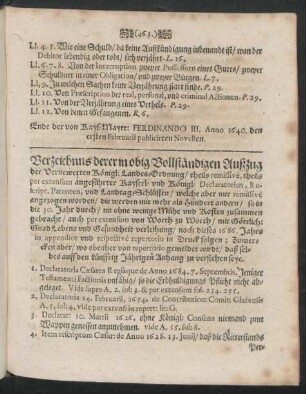 (463.)
Ll. 4. 5. Wie eine Schuld / da keine Auffkündigung inbenandt ist / wan der
Debitor lebendig oder todt / sich verjährt. L. 16.
Ll. 6. 7. 8. Von der Interruption zweyer Possessorn eines Gutts / zweyer
Schuldner in einer Obligation / und zweyer Bürgen. L. 7.
Ll. 9. In welchen Sachen keine Verjährung statt findt. P. 29.
Ll. 10. Von Præscription der real, personal, und criminal Actionen. P. 29.
Ll. 11. Von der Verjährung eines Vrthels. P. 29.
Ll. 12. Von denen Gefangenen. R. 6.
Ende der von Kays. Mayt: FERDINANDO III. Anno 1640. den
ersten Februarii publicirten Novellen.
Verzeichnus derer in obig Vollständigen Außzug
der Vernewerten Königl: Landes-Ordnung / theils remissivè, theils
per extensum angeführter Kayserl: und Königl: Declaratorien, Re-
script, Patenten, und Landtag-Schlüssen / welche aber nur remissivè
angezogen worden / die werden mir mehr als
die 30. Jahr durch / mit ohne wenige Mühe und Kosten zusammen
gebracht / auch per extensum von Worth zu Worth / mit Göttlich:
Gnad Lebens und Gesundheit verleihung / noch dieses 1686. Jahrs
in appendice und respectivè repertorio in Druck folgen ;
cken aber / wo obeitirter von repertorio gemeldet wird / daß sel-
bes auf den künfftig Jährigen Anhang zu verstehen seye.
1. Declaratoria Cæsarea Regiaque de Anno 1684. 7. Septembris,
Testamenti Factionis unfähig / so die Erbhuldigungs Pflicht nicht ab-
geleget. Vide supra A. 2. sub: 3. & per extensum fol. 234. 235.
2. Declaratoria 14. Februarii, 1654. de Contributione Comit: Glacensis
A. 5. sub: 4. vide per extensum fol.
3. Declarat: 10. Martii 1626. ohne Königl: Consens niemand zum
Wappen genossen anzunehmen. vide A. 15. sub: 8.
4. Item rescriptum Cæsar: de Anno 1628. 23. Junij / daß die Ritterstands
Per-